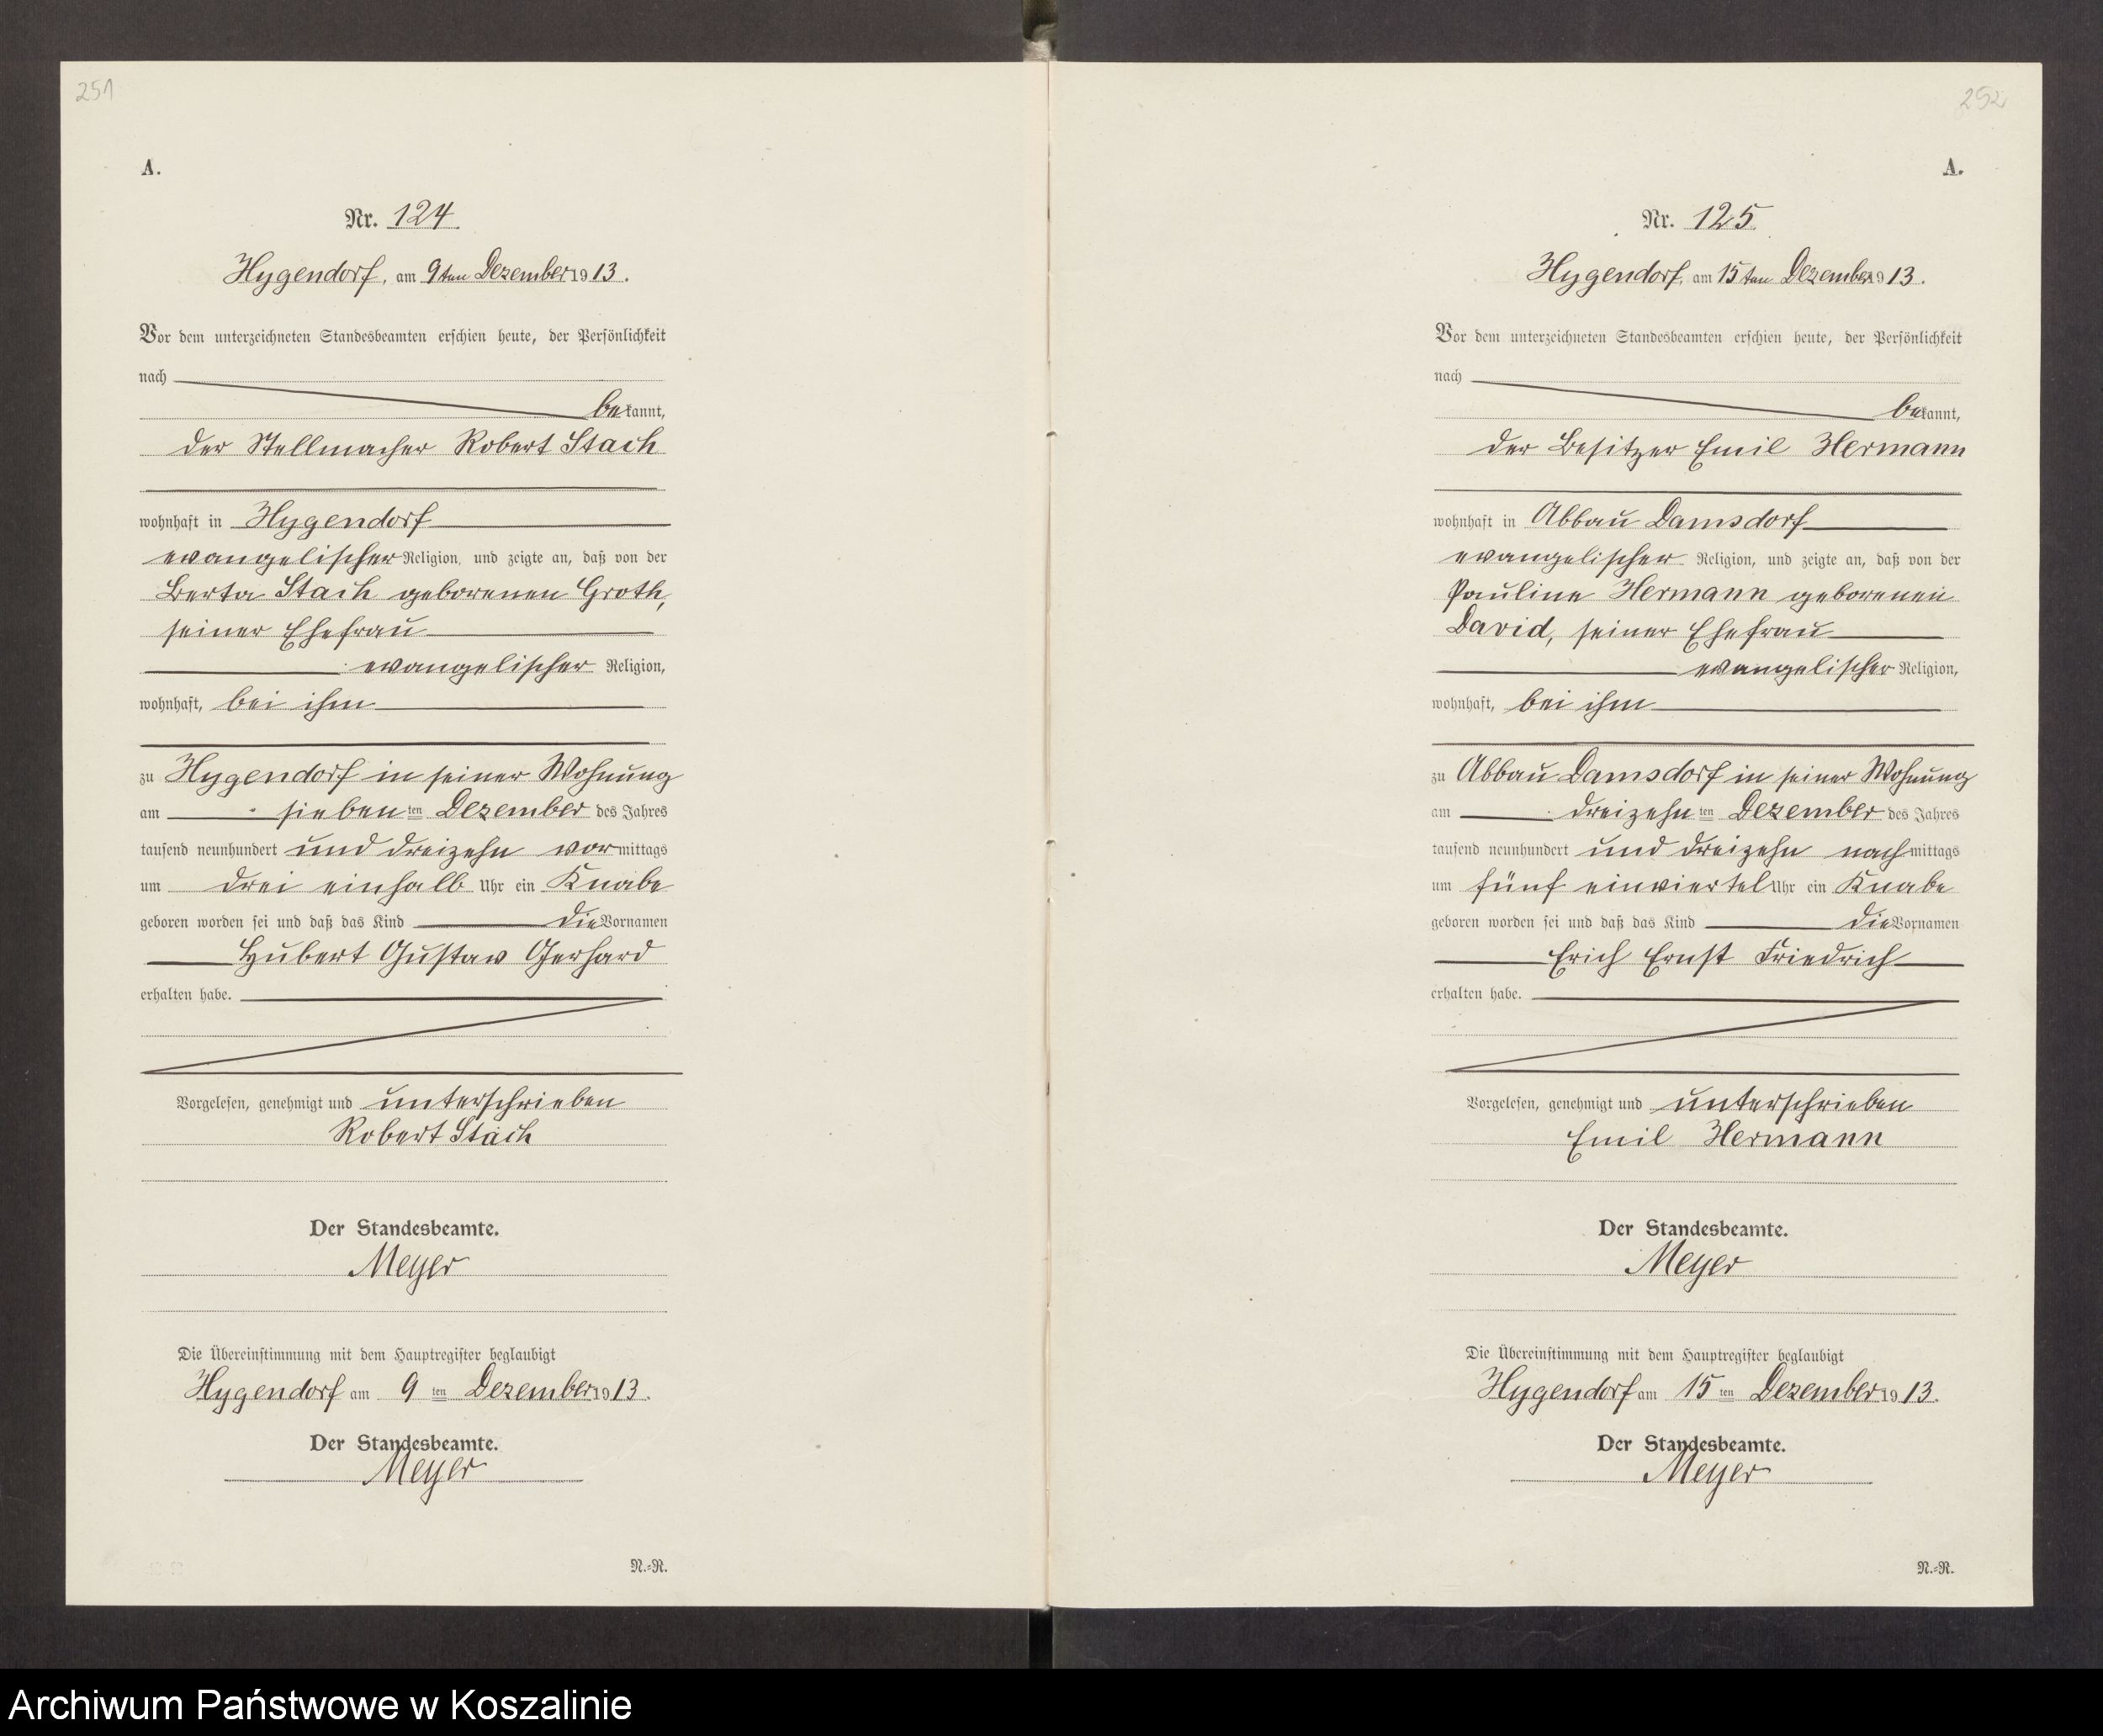 251
A.
Nr. 124.
Hygendorf, am 9ten Dezember 1913.
Vor dem unterzeichneten Standesbeamten erschien heute, der Persönlichkeit
nach
bekannt,
der Stellmacher Robert Stach
wohnhaft in Hygendorf
evangelischer Religion, und zeigte an, daß von der
Berta Stach geborenen Groth,
seiner Ehefrau
evangelischer Religion,
wohnhaft, bei ihm
zu Hygendorf in seiner Wohnung
am sieben ten Dezember des Jahres
tausend neunhundert und dreizehn vormittags
um drei einhalb Uhr ein Knabe
geboren worden sei und daß das Kind die Vornamen
Hubert Gustav Gerhard
erhalten habe.
Vorgelesen, genehmigt und unterschrieben
Robert Stach
Der Standesbeamte.
Meyer
Die Übereinstimmung mit dem Hauptregister beglaubigt
Hygendorf am 9 ten Dezember 1913.
Der Standesbeamte.
Meyer
N.-R.
252
A.
Nr. 125.
Hygendorf, am 15ten Dezember 1913.
Vor dem unterzeichneten Standesbeamten erschien heute, der Persönlichkeit
nach
bekannt,
der Besitzer Emil Hermann
wohnhaft in Abbau Damsdorf
evangelischer Religion, und zeigte an, daß von der
Pauline Hermann geborenen
David, seiner Ehefrau
evangelischer Religion,
wohnhaft, bei ihm
zu Abbau Damsdorf in seiner Wohnung
am dreizehn ten Dezember des Jahres
tausend neunhundert und dreizehn nachmittags
um fünf einviertel Uhr ein Knabe
geboren worden sei und daß das Kind die Vornamen
Erich Ernst Friedrich
erhalten habe.
Vorgelesen, genehmigt und unterschrieben
Emil Hermann
Der Standesbeamte.
Meyer
Die Übereinstimmung mit dem Hauptregister beglaubigt
Hygendorf am 15 ten Dezember 1913.
Der Standesbeamte.
Meyer
N.-R.
Archiwum Państwowe w Koszalinie